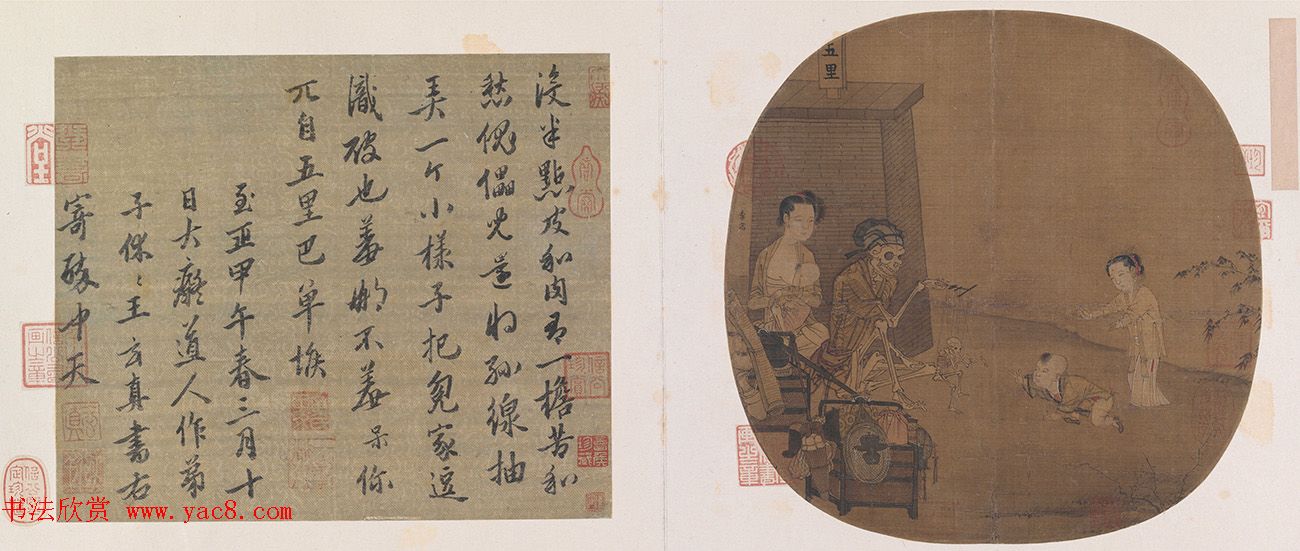 没半點皮和肉有一擔苦和
愁傀儡兒還將絲線抽
弄一个小樣子把冤家逗
識破也羞那不羞呆你
兀自五里巴单堠
至正甲午春三月十
日大癡道人作弟
子休〻王玄真書右
寄醉中天
五里
李嵩
书法欣赏 www.yac8.com